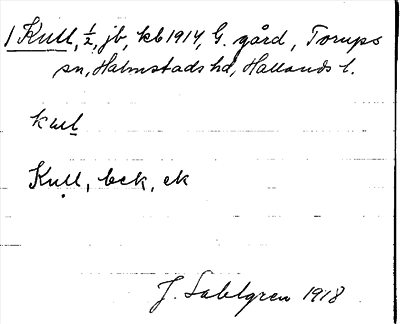 1 Kull, ½, jb, kb 1914, G. gård, Torups
sn, Halmstads hd, Hallands l.
kul̲
Kụll, bck, ek
J. Sahlgren 1918